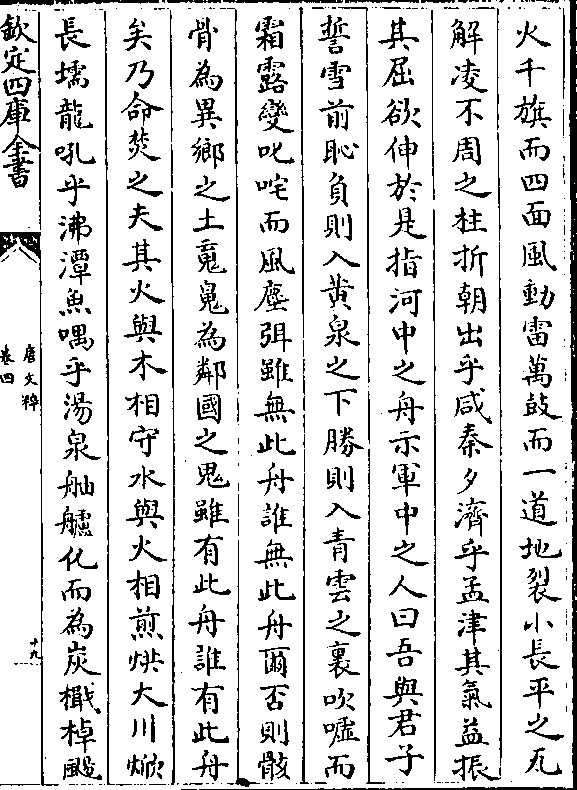 火千旗而四面風動雷萬鼓而一道地裂小長平之瓦
解凌不周之柱折朝出乎咸秦夕濟乎孟津其氣益振
其屈欲伸於是指河中之舟示軍中之人曰吾與君子
誓雪前恥負則入黄泉之下勝則入青雲之裏吹噓而
霜露變叱咤而風塵弭雖無此舟誰無此舟爾否則骸
骨為異鄉之土䰟鬼為鄰國之鬼雖有此舟誰有此舟
矣乃命焚之夫其火與木相守水與火相煎烘大川焮
長壖龍吼乎沸潭魚喁乎湯泉舳艫化而為炭檝棹颺
欽定四庫全書
唐文粹
卷四
十九